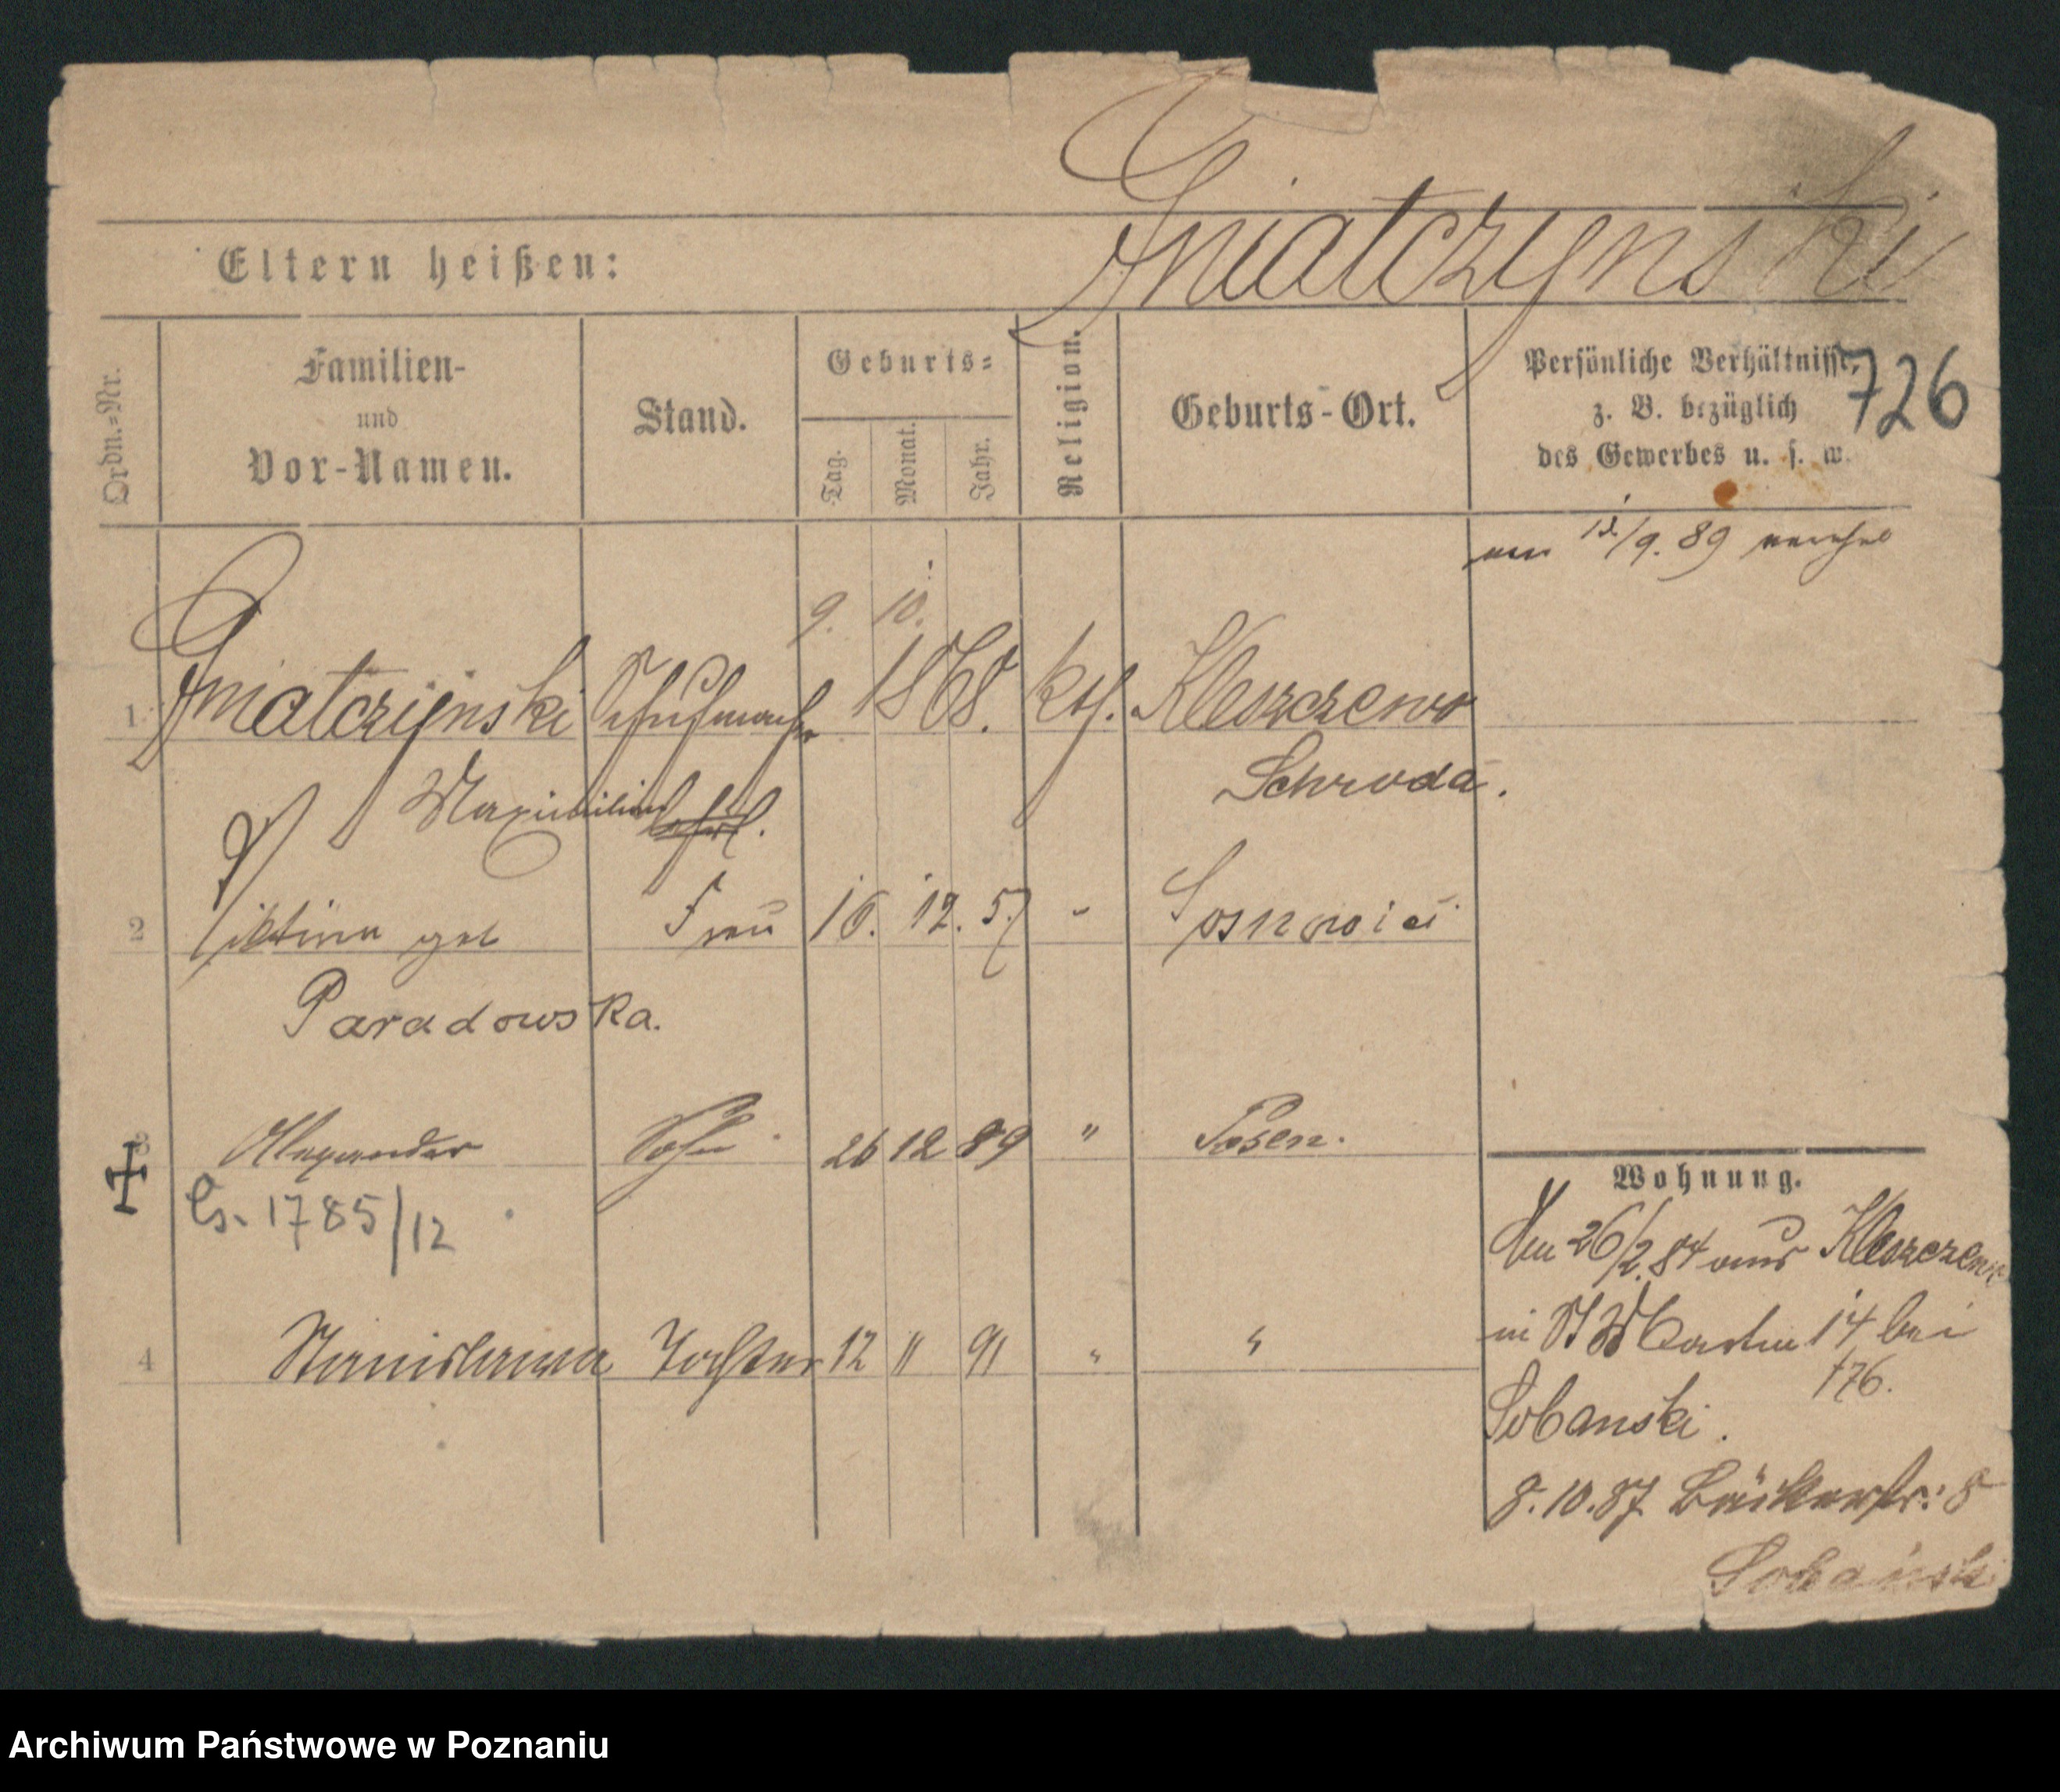 Gniatczynski
Eltern heißen:
Ordn.=Nr.
Familien-
und
Vor-Namen.
Stand.
Geburts=
Tag.
Monat.
Jahr.
Religion.
Geburts-Ort.
Persönliche Verhältnisse,
z. B. bezüglich
des Gewerbes u. s. w.
726
/9. 89
9. 10.
1 Gniatczynski Schuhmacher 1868. kth. Kleszczewo
Maximilian Schroda.
2 geb Frau 16. 12. 57 "
Paradowska.
3 Alexander Sohn 26 12 89 " Posen.
1785/12
4 Stanislawa Tochter 12 11 91 " "
Wohnung.
26/2. 84 aus Kleszczewo
in St Martin 14 bei
176.
Sobanski.
8. 10. 87 Bäckerstr: 8
Sobański
Archiwum Państwowe w Poznaniu